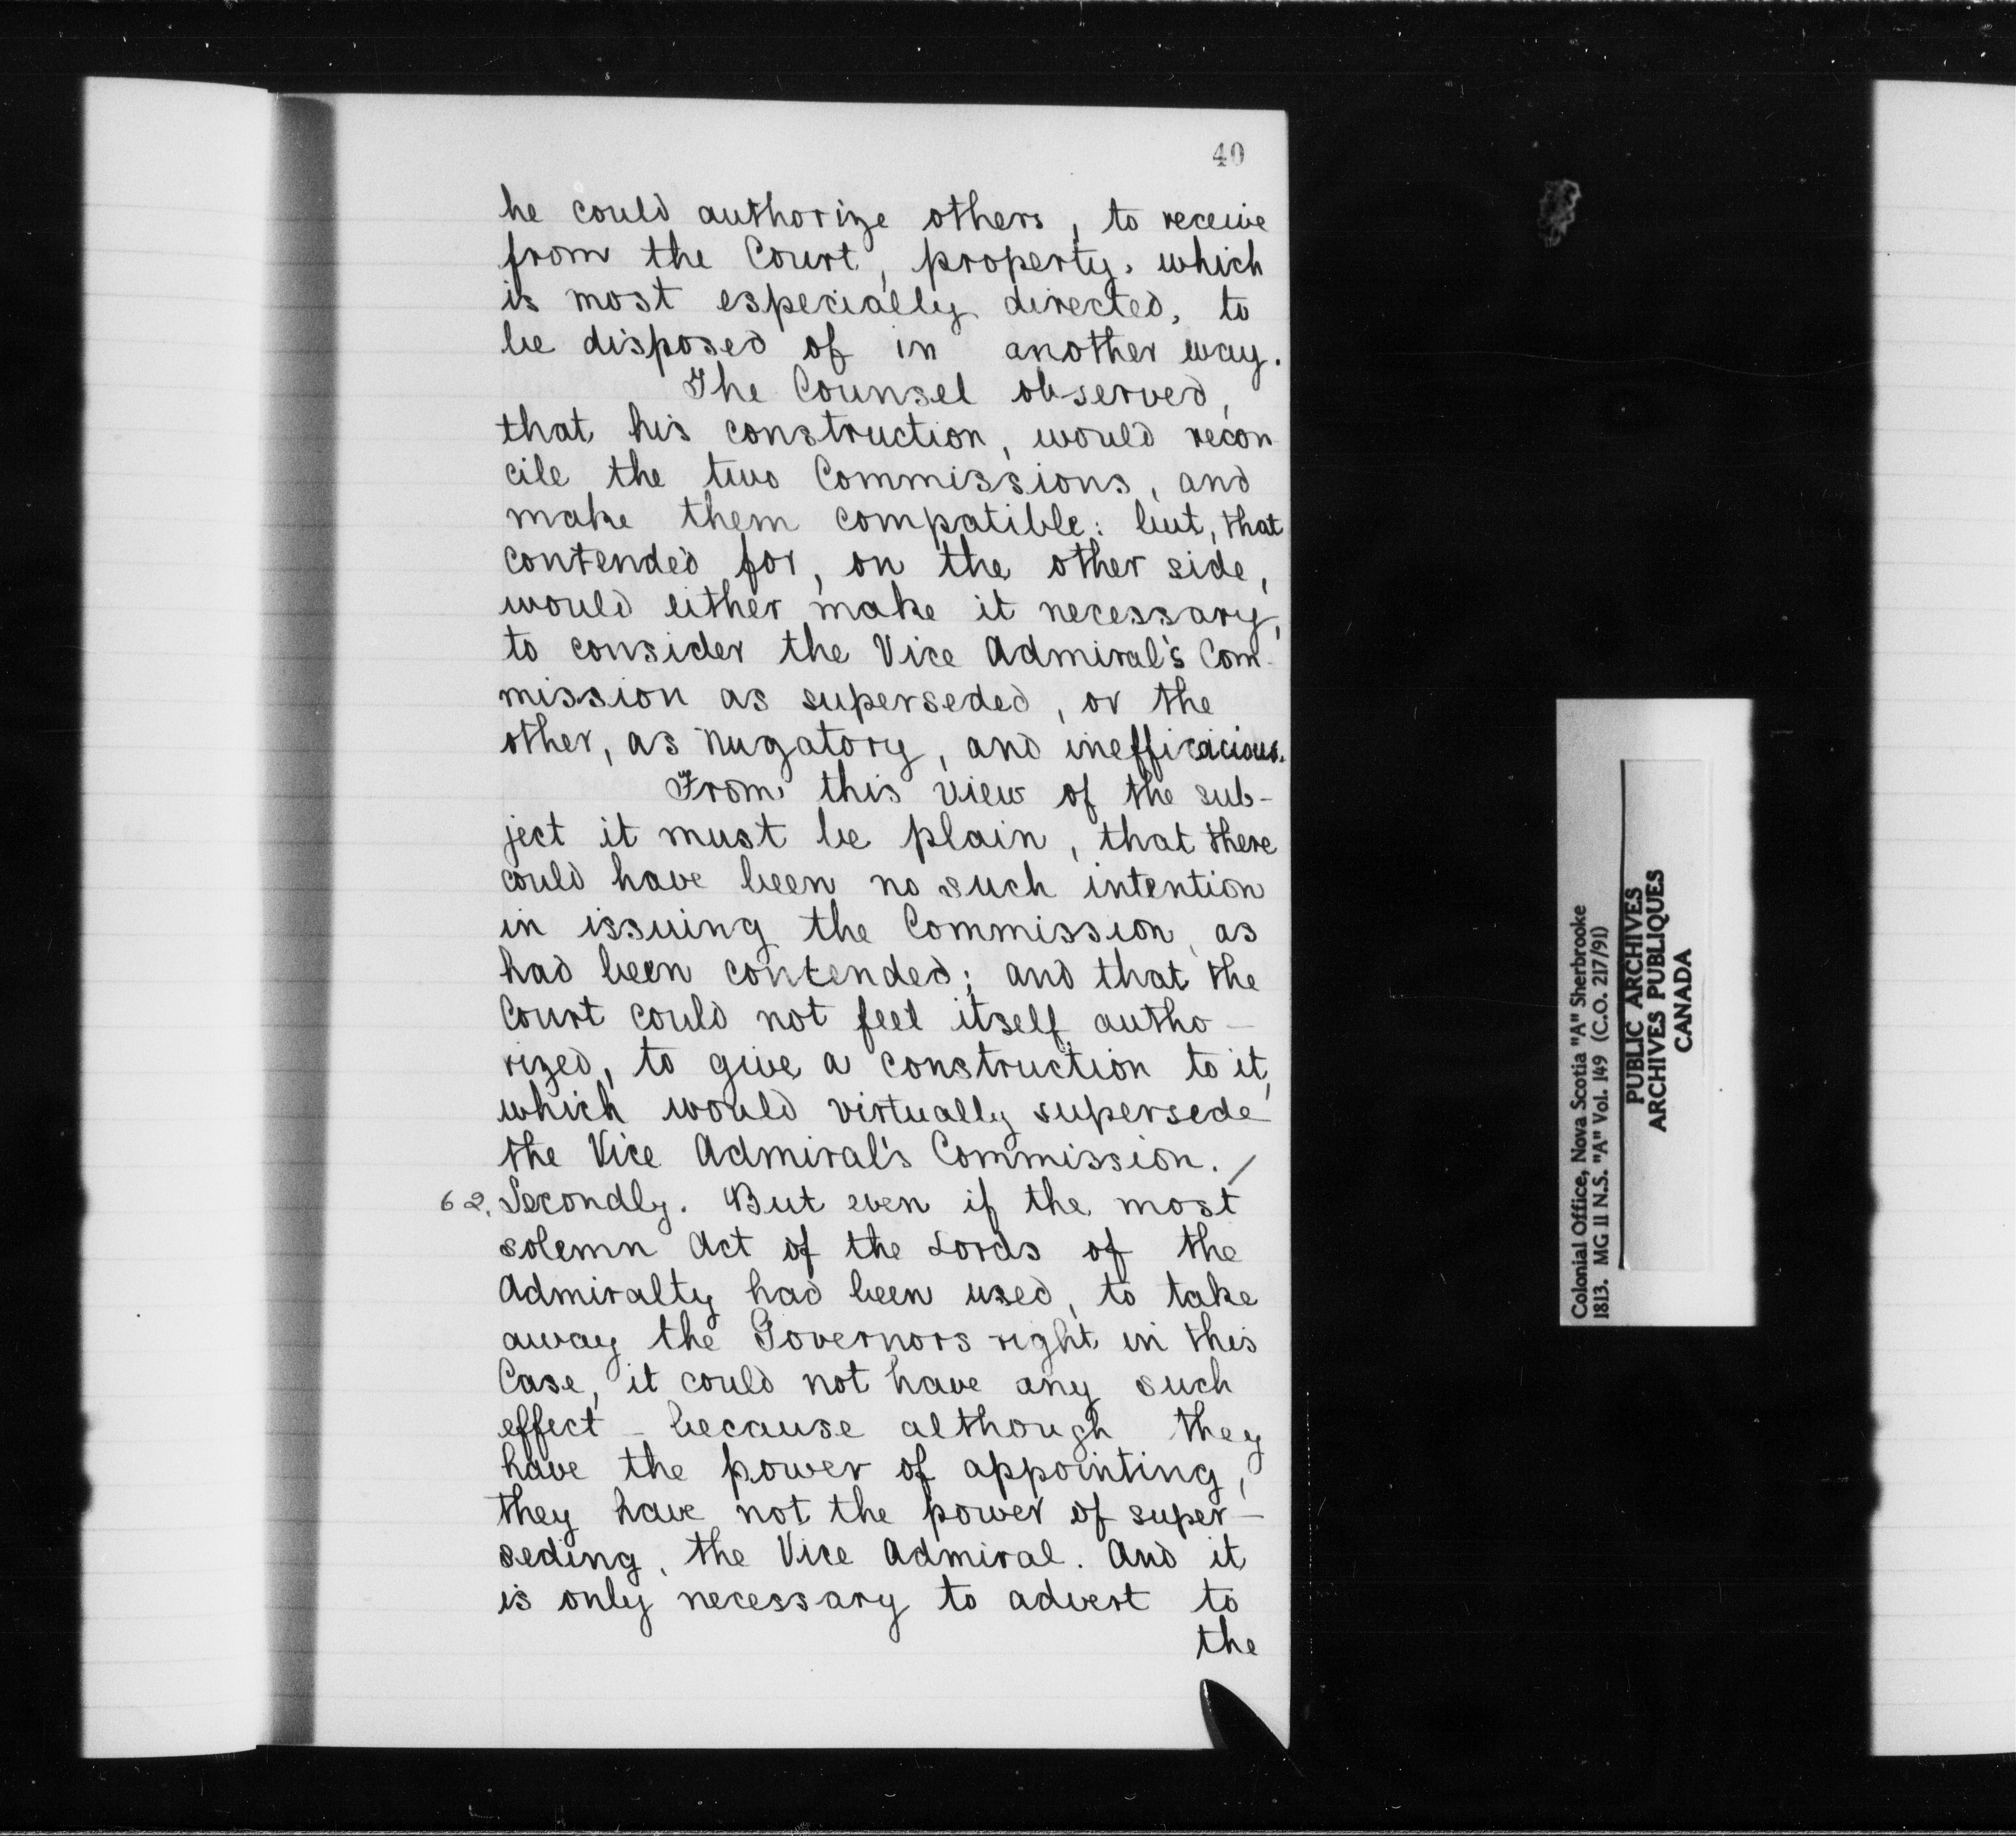 40
he could authorize others, to receive
from the Court, property, which
is most especially directed, to
be disposed of in another way.
The Counsel observed,
that his construction, would recon
cile the two Commissions, and
make them compatible: but, that
contended for, on the other side,
would either make it necessary,
to consider the Vice Admiral's Com-
mission as superseded, or the
other, as nugatory, and inefficacious.
From this view of the sub-
ject it must be plain, that there
could have been no such intention
in issuing the Commission, as
had been contended; and that the
Court could not feel itself autho-
rized, to give a construction to it,
which would virtually supersede
the Vice Admiral's Commission. /
62. Secondly. But even if the most
solemn Act of the Lords of the
Admiralty had been used, to take
away the Governors right in this
Case, it could not have any such
effect - because although they
have the power of appointing,
they have not the power of super-
seding, the Vice Admiral. And it
is only necessary to advert to
the
Colonial Office, Nova Scotia "A" Sherbrooke
1813. MG 11 N.S. "A" Vol. 149 (C.O. 217/91)
PUBLIC ARCHIVES
ARCHIVES PUBLIQUES
CANADA